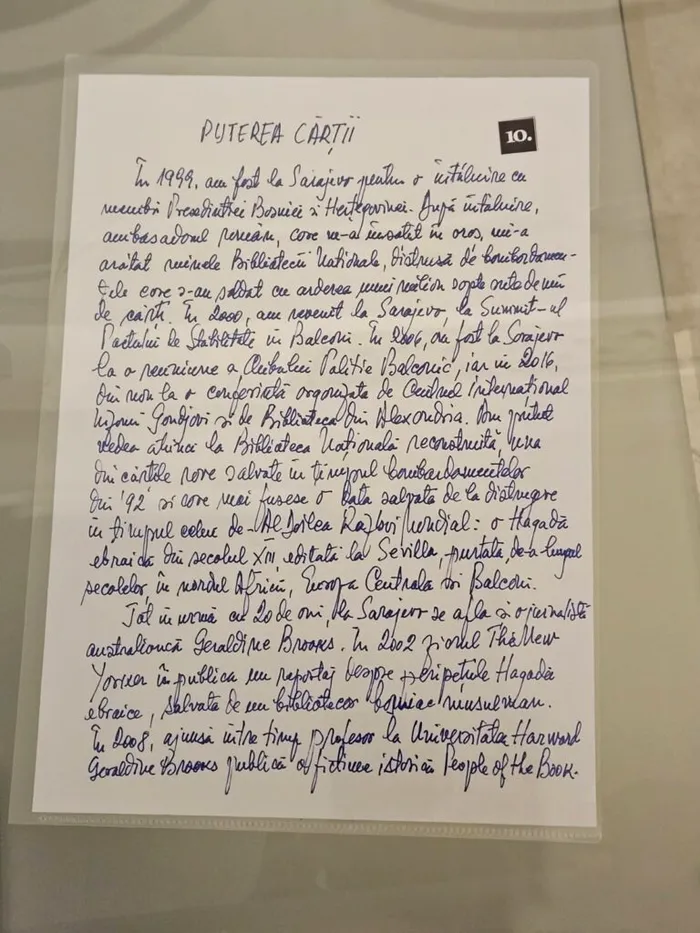 PUTEREA CĂRȚII
10.
În 1999, am fost la Sarajevo pentru o întâlnire cu
membrii Președinției Bosniei și Herțegovinei. După întâlnire,
ambasadorul român, care m-a însoțit în oraș, mi-a
arătat ruinele Bibliotecii Naționale, distrusă de bombardamen-
tele care s-au soldat cu arderea unui milion șapte sute de mii
de cărți. În 2000, am revenit la Sarajevo, la Summit-ul
Pactului de Stabilitate în Balcani. În 2006, am fost la Sarajevo
la o reuniune a Clubului Politic Balcanic, iar în 2016,
din nou la o conferință organizată de Centrul Internațional
Nizami Ganjavi și de Biblioteca din Alexandria. Am putut
vedea atunci la Biblioteca Națională reconstruită, una
din cărțile rare salvate în timpul bombardamentelor
din '92 și care mai fusese o dată salvată de la distrugere
în timpul celui de-Al Doilea Război Mondial: o Hagadă
ebraică din secolul XIII, editată la Sevilla, purtată, de-a lungul
secolelor, în nordul Africii, Europa Centrală și Balcani.
Tot în urmă cu 20 de ani, la Sarajevo se afla și o jurnalistă
australiancă Geraldine Brooks. În 2002 ziarul The New
Yorker îi publica un reportaj despre peripețiile Hagadei
ebraice, salvată de un bibliotecar bosniac musulman.
În 2008, ajunsă între timp profesor la Universitatea Harward
Geraldine Brooks publică o ficțiune istorică People of the Book.